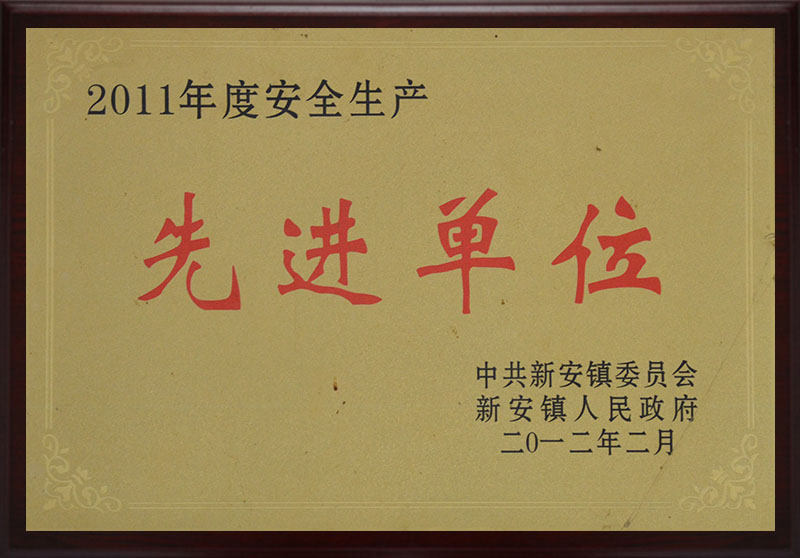 2011年度安全生产
先进单位
中共新安镇委员会
新安镇人民政府
二0一二年二月